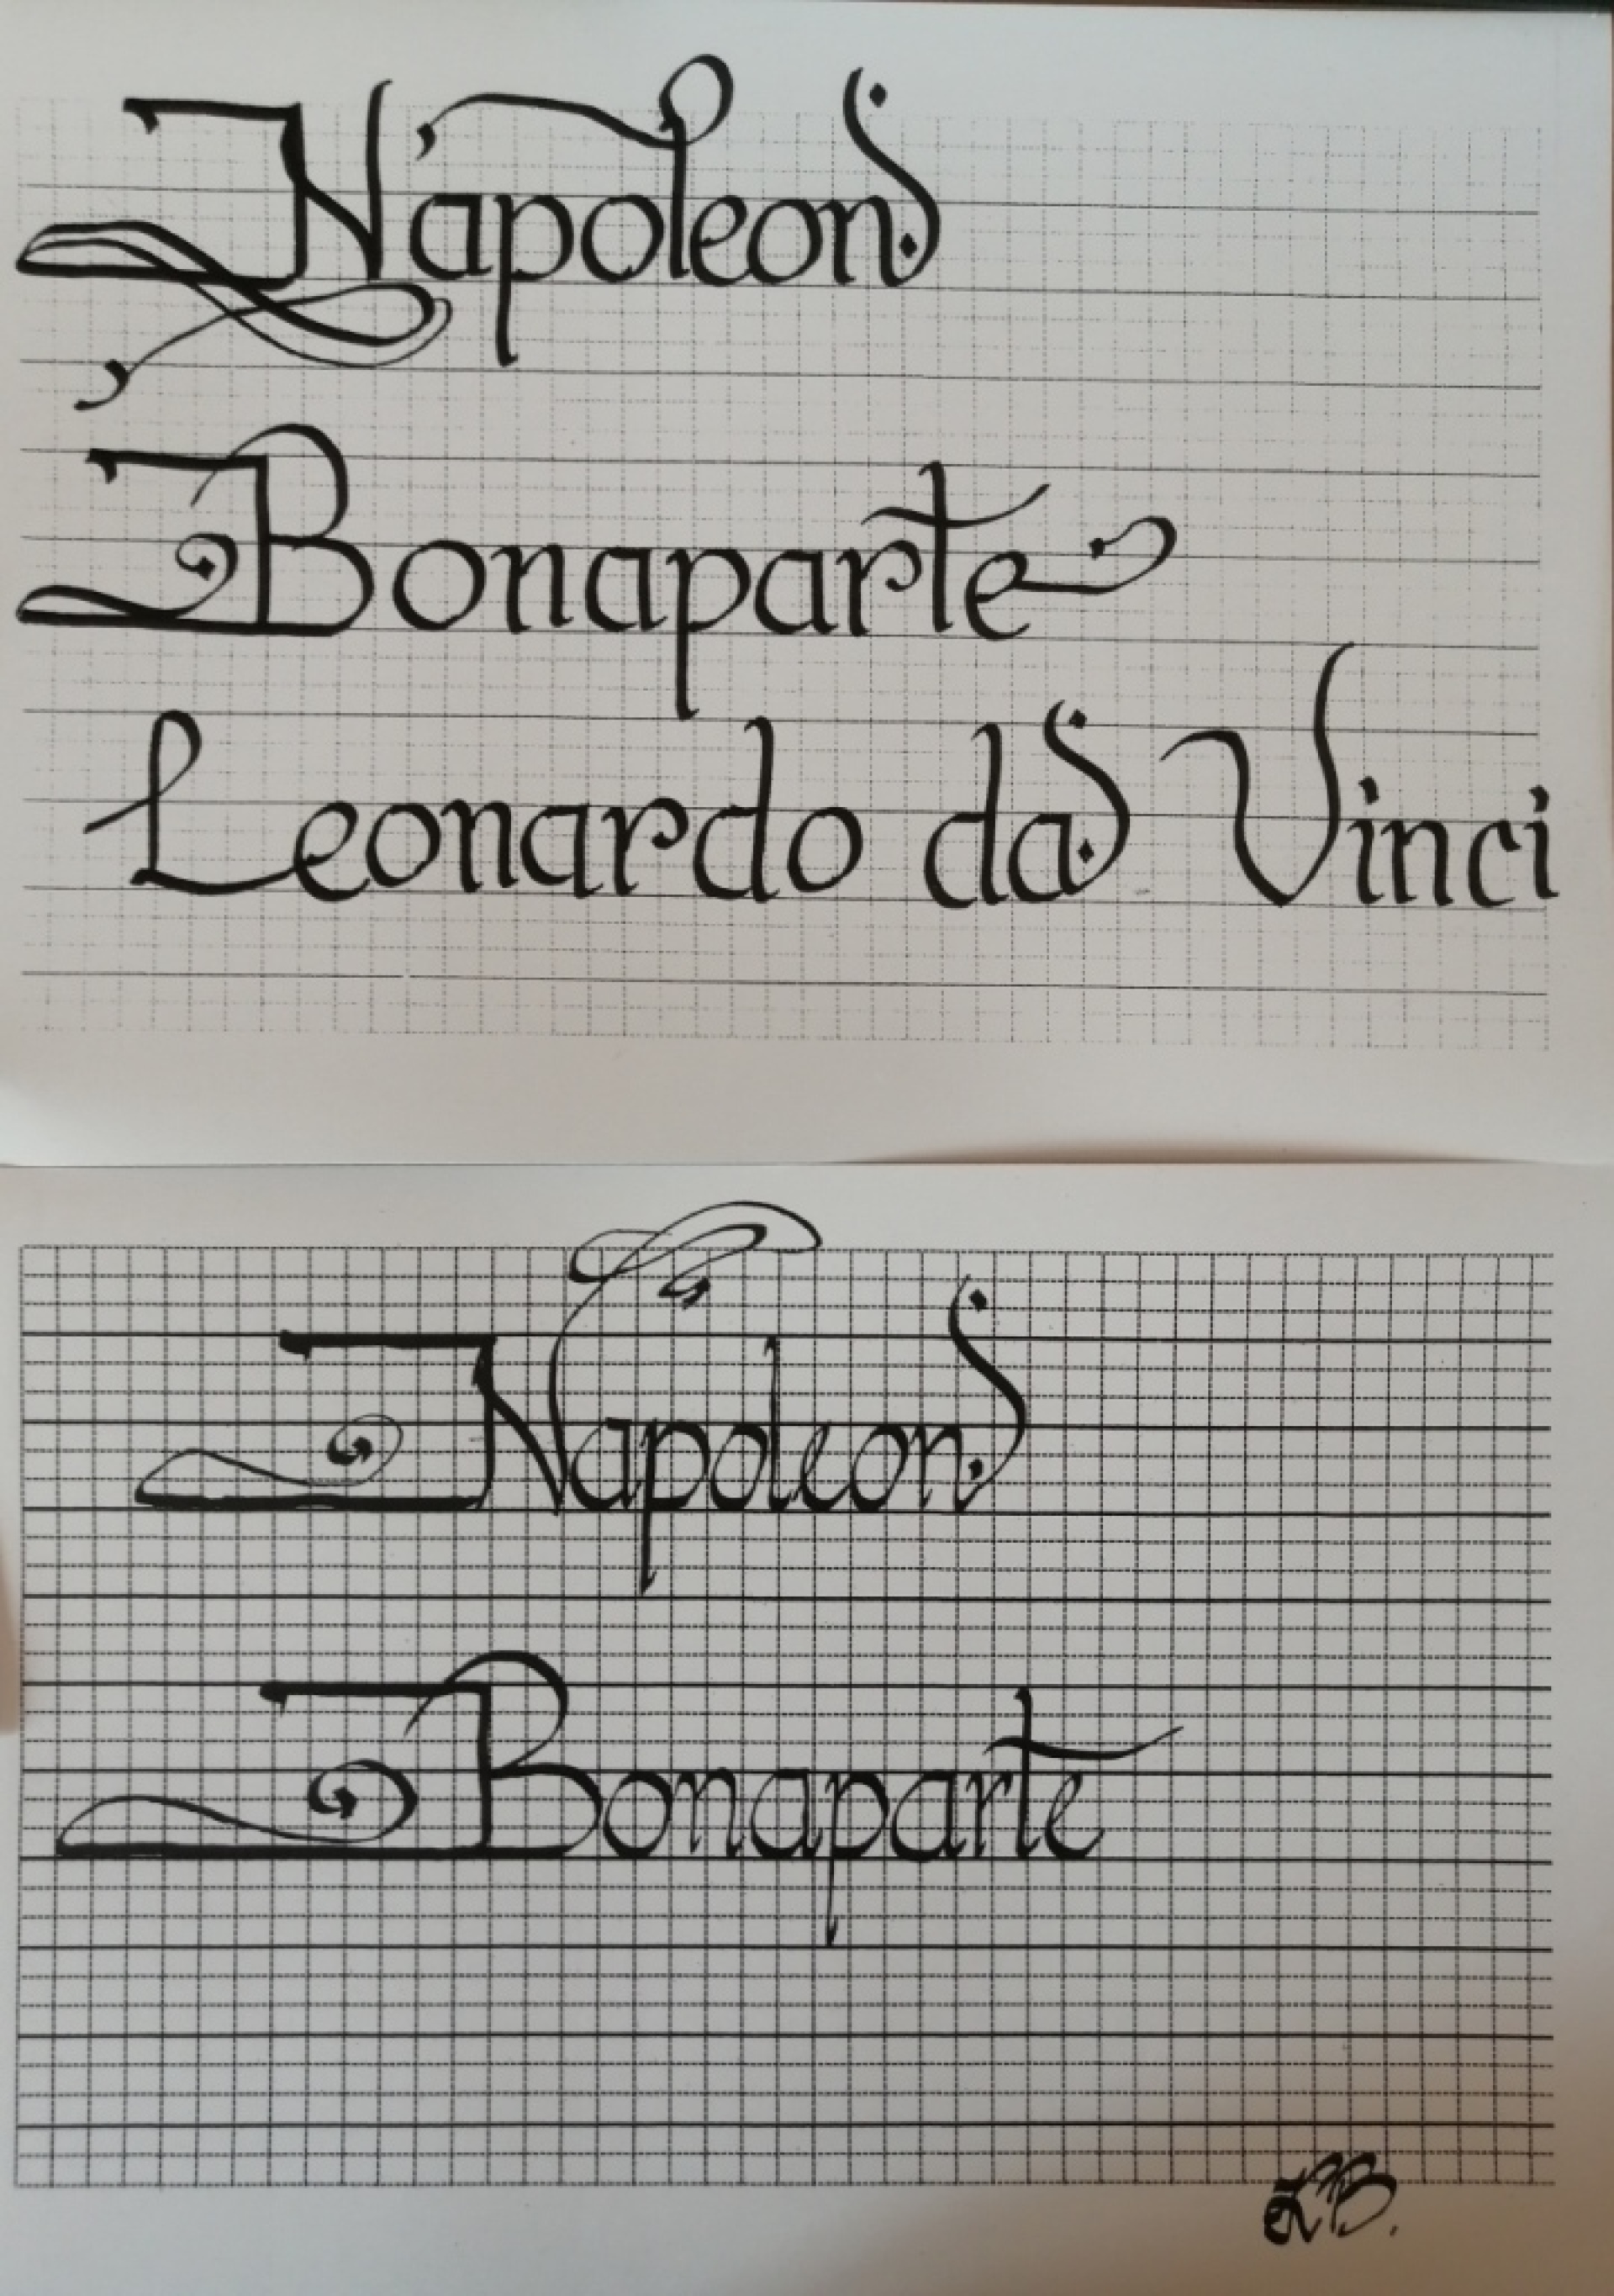 Napoleon
Bonaparte
Leonardo da Vinci
Napoleon
Bonaparte